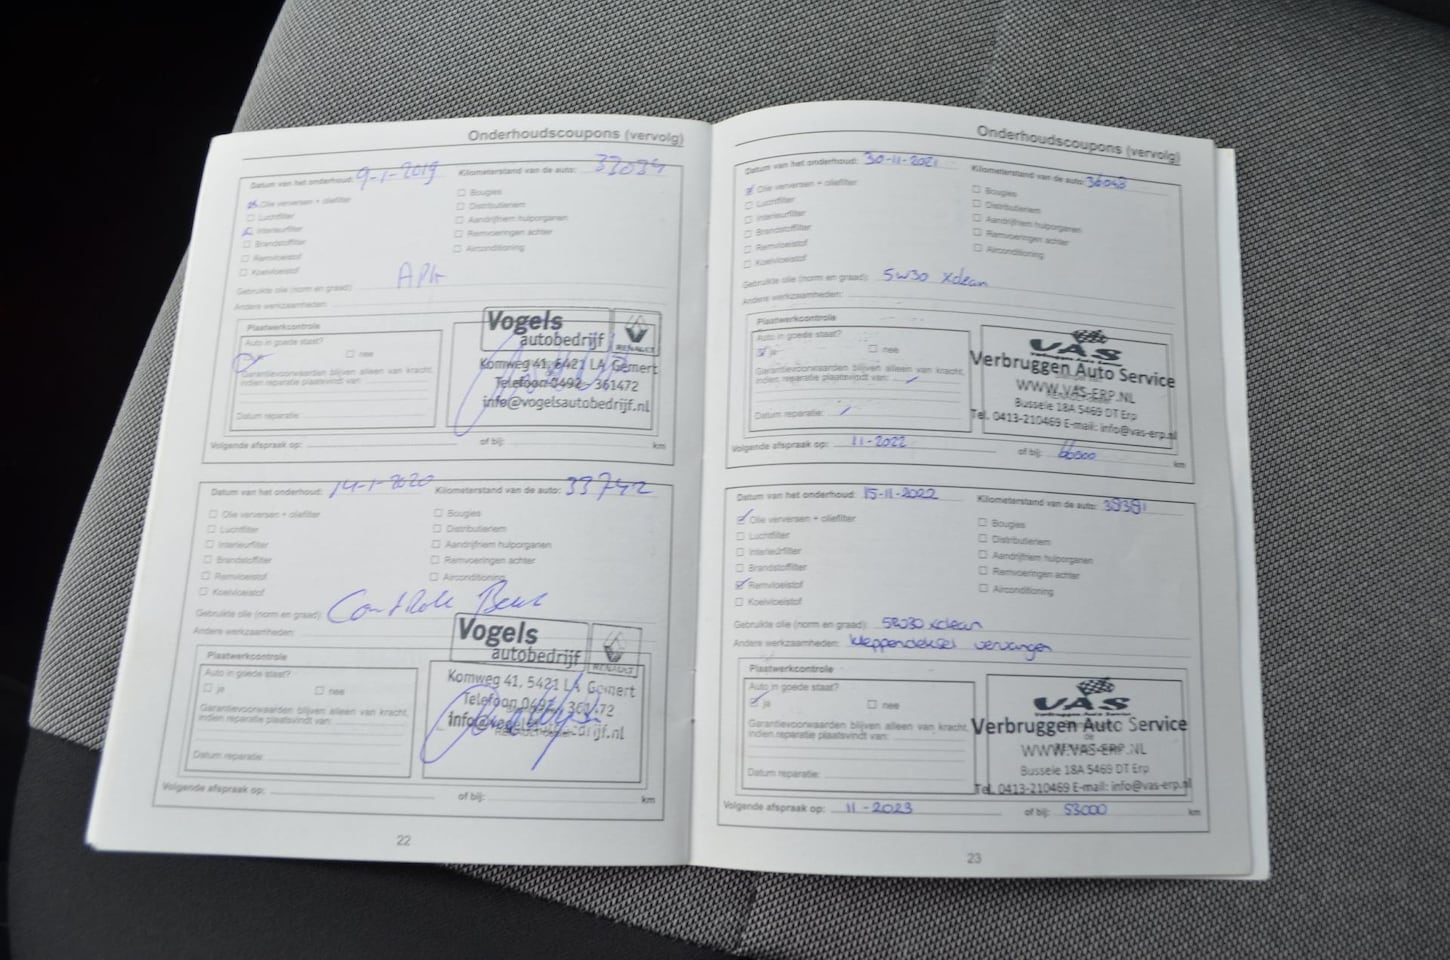 Onderhoudscoupons (vervolg)
Datum van het onderhoud: 9-1-2019 Kilometerstand van de auto:
Olie verversen + oliefilter
Luchtfilter
Interieurfilter
Brandstoffilter
Remvloeistof
Koelvloeistof
Bougies
Distributieriem
Aandrijfriem hulporganen
Remvoeringen achter
Airconditioning
Gebruikte olie (norm en graad): APK
Andere werkzaamheden:
Plaatwerkcontrole
Auto in goede staat?
nee
Garantievoorwaarden blijven alleen van kracht,
indien reparatie plaatsvindt van:
Datum reparatie:
Vogels
autobedrijf
RENAULT
Komweg 41, 5421 LA Gemert
Telefoon 0492 - 361472
info@vogelsautobedrijf.nl
Volgende afspraak op: of bij: km
Datum van het onderhoud: 14-1-2020 Kilometerstand van de auto: 33742
Olie verversen + oliefilter
Luchtfilter
Interieurfilter
Brandstoffilter
Remvloeistof
Koelvloeistof
Bougies
Distributieriem
Aandrijfriem hulporganen
Remvoeringen achter
Airconditioning
Gebruikte olie (norm en graad): Controle Beurt
Andere werkzaamheden:
Plaatwerkcontrole
Auto in goede staat?
ja nee
Garantievoorwaarden blijven alleen van kracht,
indien reparatie plaatsvindt van:
Datum reparatie:
Vogels
autobedrijf
RENAULT
Komweg 41, 5421 LA Gemert
Telefoon 0492 - 361472
info@vogelsautobedrijf.nl
Volgende afspraak op: of bij: km
22
Onderhoudscoupons (vervolg)
Datum van het onderhoud: 30-11-2021 Kilometerstand van de auto: 36048
Olie verversen + oliefilter
Luchtfilter
Interieurfilter
Brandstoffilter
Remvloeistof
Koelvloeistof
Bougies
Distributieriem
Aandrijfriem hulporganen
Remvoeringen achter
Airconditioning
Gebruikte olie (norm en graad): 5W30 Xclean
Andere werkzaamheden:
Plaatwerkcontrole
Auto in goede staat?
ja nee
Garantievoorwaarden blijven alleen van kracht,
indien reparatie plaatsvindt van:
Datum reparatie:
VAS
Verbruggen Auto Service
Verbruggen Auto Service
WWW.VAS-ERP.NL
Bussele 18A 5469 DT Erp
Tel. 0413-210469 E-mail: info@vas-erp.nl
Volgende afspraak op: 11-2022 of bij: km
Datum van het onderhoud: 15-11-2022 Kilometerstand van de auto:
Olie verversen + oliefilter
Luchtfilter
Interieurfilter
Brandstoffilter
Remvloeistof
Koelvloeistof
Bougies
Distributieriem
Aandrijfriem hulporganen
Remvoeringen achter
Airconditioning
Gebruikte olie (norm en graad): 5W30 xclean
Andere werkzaamheden: kleppendeksel vervangen
Plaatwerkcontrole
Auto in goede staat?
ja nee
Garantievoorwaarden blijven alleen van kracht,
indien reparatie plaatsvindt van:
Datum reparatie:
VAS
Verbruggen Auto Service
Verbruggen Auto Service
WWW.VAS-ERP.NL
Bussele 18A 5469 DT Erp
Tel. 0413-210469 E-mail: info@vas-erp.nl
Volgende afspraak op: 11-2023 of bij: 53000 km
23